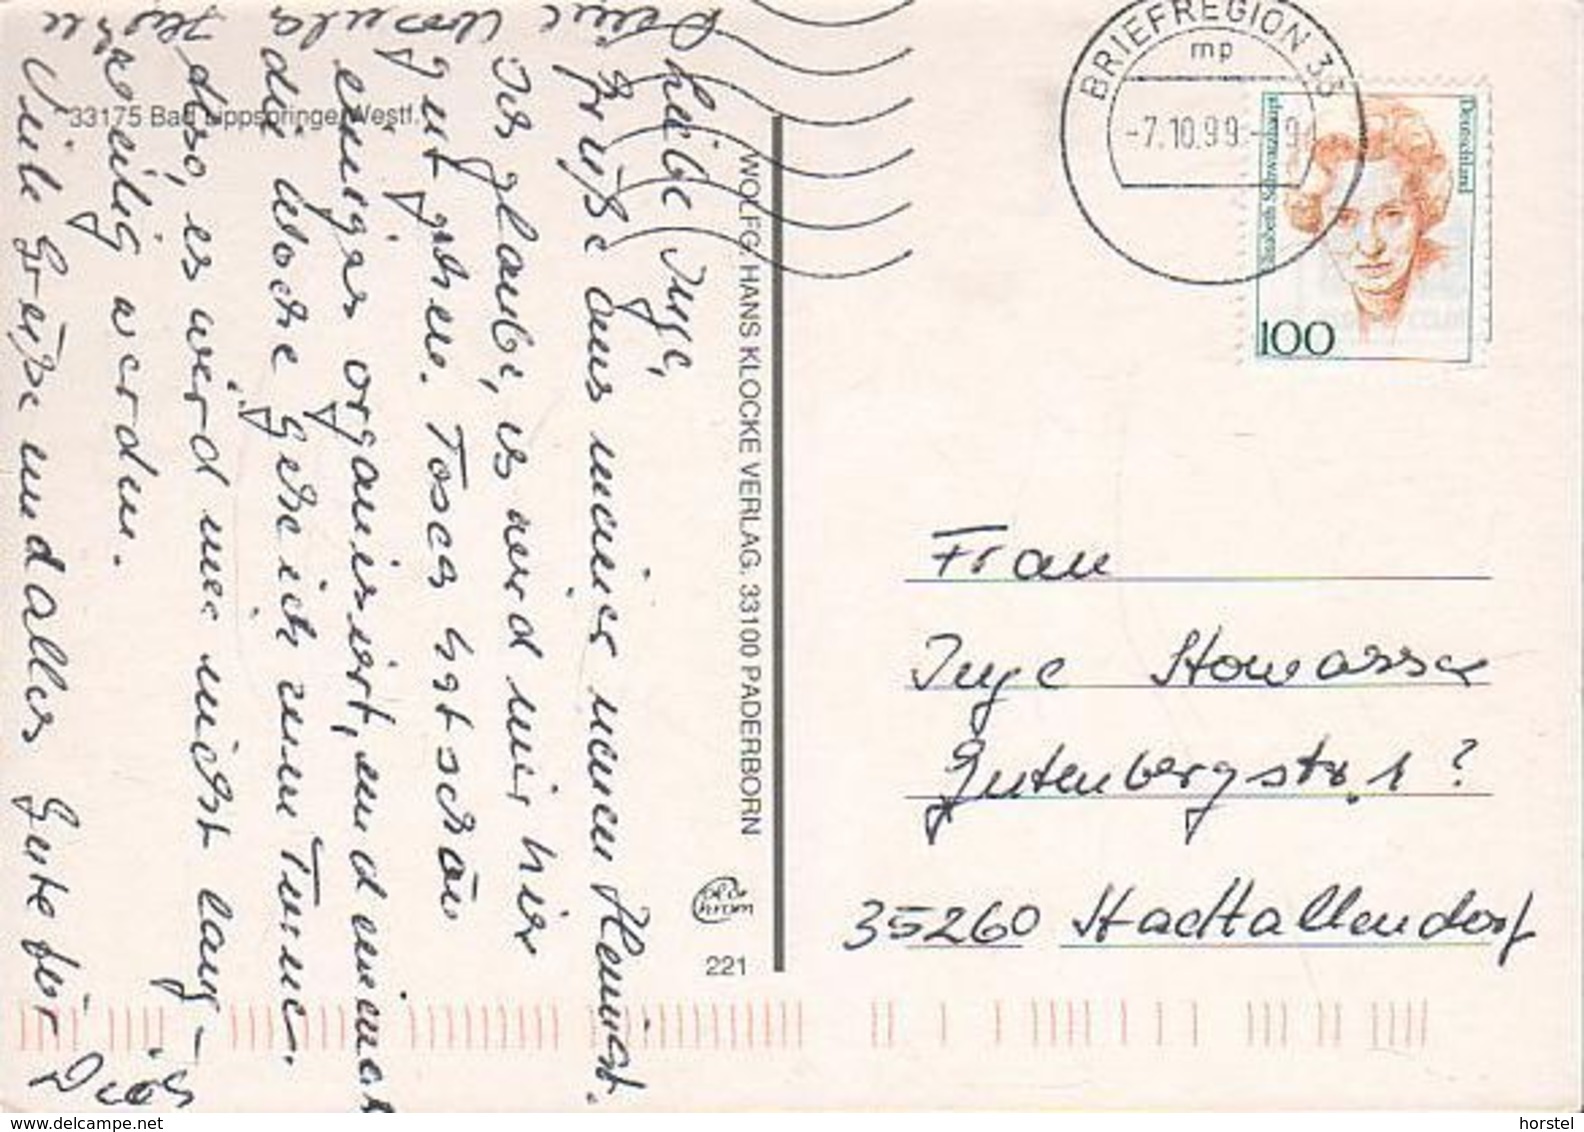 33175 Bad Lippspringe/Westf.
Liebe Inge,
Grüße aus meiner neuen Heimat.
Ich glaube, es wird mir hier
gut gehen. Tosca hat schon
einiges organisiert, und einmal
die Woche gehe ich zum Turnen.
Also, es wird mir nicht lang-
weilig werden.
Viele Grüße und alles Gute für
Dich
Deine Ursula
WOLFG. HANS KLOCKE VERLAG. 33100 PADERBORN
221
BRIEFREGION 33
mp
-7.10.99-19
Deutschland
Elisabeth Schwarzhaupt
100
Frau
Inge Stowasser
Gutenbergstr. 1?
35260 Stadtallendorf
delcampe.net
horstel